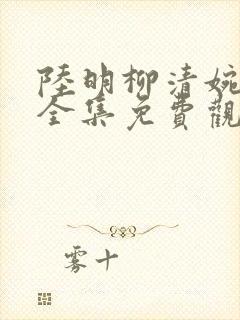 陸明柳清婉
全集免費觀
雾十